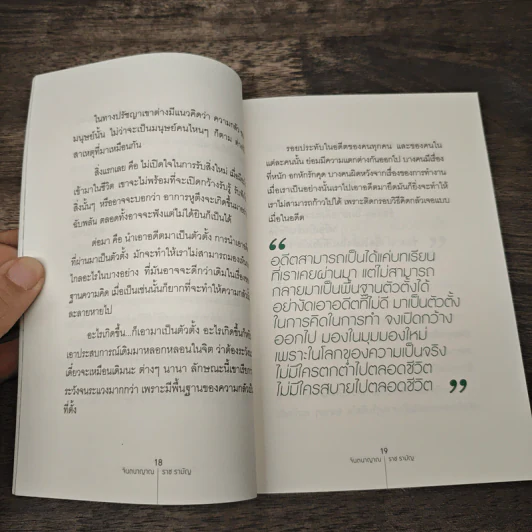 ในทางปรัชญาเขาต่างมีแนวคิดว่า ความกลัว
มนุษย์นั้น ไม่ว่าจะเป็นมนุษย์คนไหนๆ ก็ตาม
สาเหตุที่มาเหมือนกัน
สิ่งแรกเลย คือ ไม่เปิดใจในการรับสิ่งใหม่
เข้ามาในชีวิต เขาจะไม่พร้อมที่จะเปิดกว้างรับรู้
สิ่งนั้นๆ หรืออาจจะบอกว่า อาการหูตึงจะเกิดขึ้น
ฉับพลัน ตลอดทั้งอาจจะฟังแต่ไม่ได้ยินก็เป็นได้
ต่อมา คือ นำเอาอดีตมาเป็นตัวตั้ง การนำเอา
ที่ผ่านมาเป็นตัวตั้ง มักจะทำให้เราไม่สามารถมอง
ไกลอะไรในบางอย่าง ที่มันอาจจะดีกว่าเดิมใน
ฐานความคิด เมื่อเป็นเช่นนั้นก็ยากที่จะทำให้ความกลัว
ละลายหายไป
อะไรเกิดขึ้น...ก็เอามาเป็นตัวตั้ง อะไรเกิดขึ้น
เอาประสบการณ์เดิมมาหลอกหลอนในจิต ว่าต้องระวัง
เดี๋ยวจะเหมือนเดิมนะ ต่างๆ นานา ลักษณะนี้เขาเรียก
ระวังจนระแวงมากกว่า เพราะมีพื้นฐานของความกลัว
ที่ตั้ง
18
จินตนาญาณ | ราช รามัญ
รอยประทับในอดีตของคนทุกคน และของคนใน
แต่ละคนนั้น ย่อมมีความแตกต่างกันออกไป บางคนมีเรื่อง
ที่หนัก อกหักรักคุด บางคนผิดหวังจากเรื่องของการทำงาน
เมื่อเราเป็นอย่างนั้นเราไปเอาอดีตมายึดมันก็ยิ่งจะทำให้
เราไม่สามารถก้าวไปได้ เพราะติดกรอบวิธีคิดกลัวเจอแบบ
เมื่อในอดีต
“
อดีตสามารถเป็นได้แค่บทเรียน
ที่เราเคยผ่านมา แต่ไม่สามารถ
กลายมาเป็นพื้นฐานตัวตั้งได้
อย่างัดเอาอดีตที่ไม่ดี มาเป็นตัวตั้ง
ในการคิดในการทำ จงเปิดกว้าง
ออกไป มองในมุมมองใหม่
เพราะในโลกของความเป็นจริง
ไม่มีใครตกต่ำไปตลอดชีวิต
ไม่มีใครสบายไปตลอดชีวิต ”
19
จินตนาญาณ | ราช รามัญ